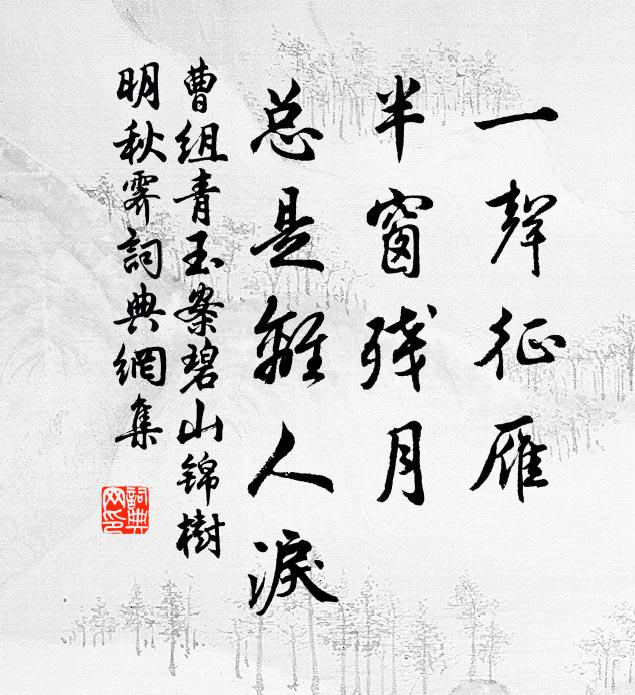 一聲征雁
半窗残月
总是離人淚
曹组青玉案碧山锦樹
明秋霽詞典網集
詞典網印